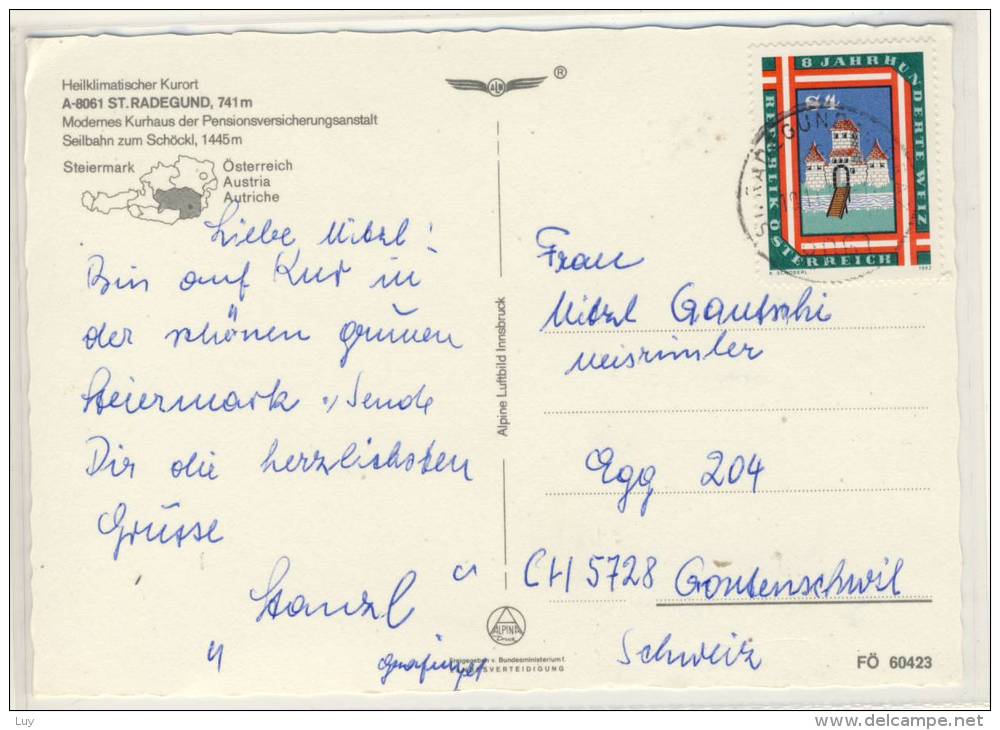 Heilklimatischer Kurort
A-8061 ST. RADEGUND, 741 m
Modernes Kurhaus der Pensionsversicherungsanstalt
Seilbahn zum Schöckl, 1445 m
Steiermark
Österreich
Austria
Autriche
ALM
®
8 JAHRHUNDERTE WEIZ
REPUBLIK ÖSTERREICH
S 4
1982
Liebe Mitzl!
Bin auf Kur in
der schönen grünen
Steiermark, Sende
Dir die herzlichsten
Grüsse
Stanzl
Alpine Luftbild Innsbruck
Frau
Mitzl Gautschi
Egg 204
CH 5728 Gontenschwil
Schweiz
ALPINA
Druck
Freigegeben v. Bundesministerium f.
LANDESVERTEIDIGUNG
FÖ 60423
Luy
www.delcampe.net